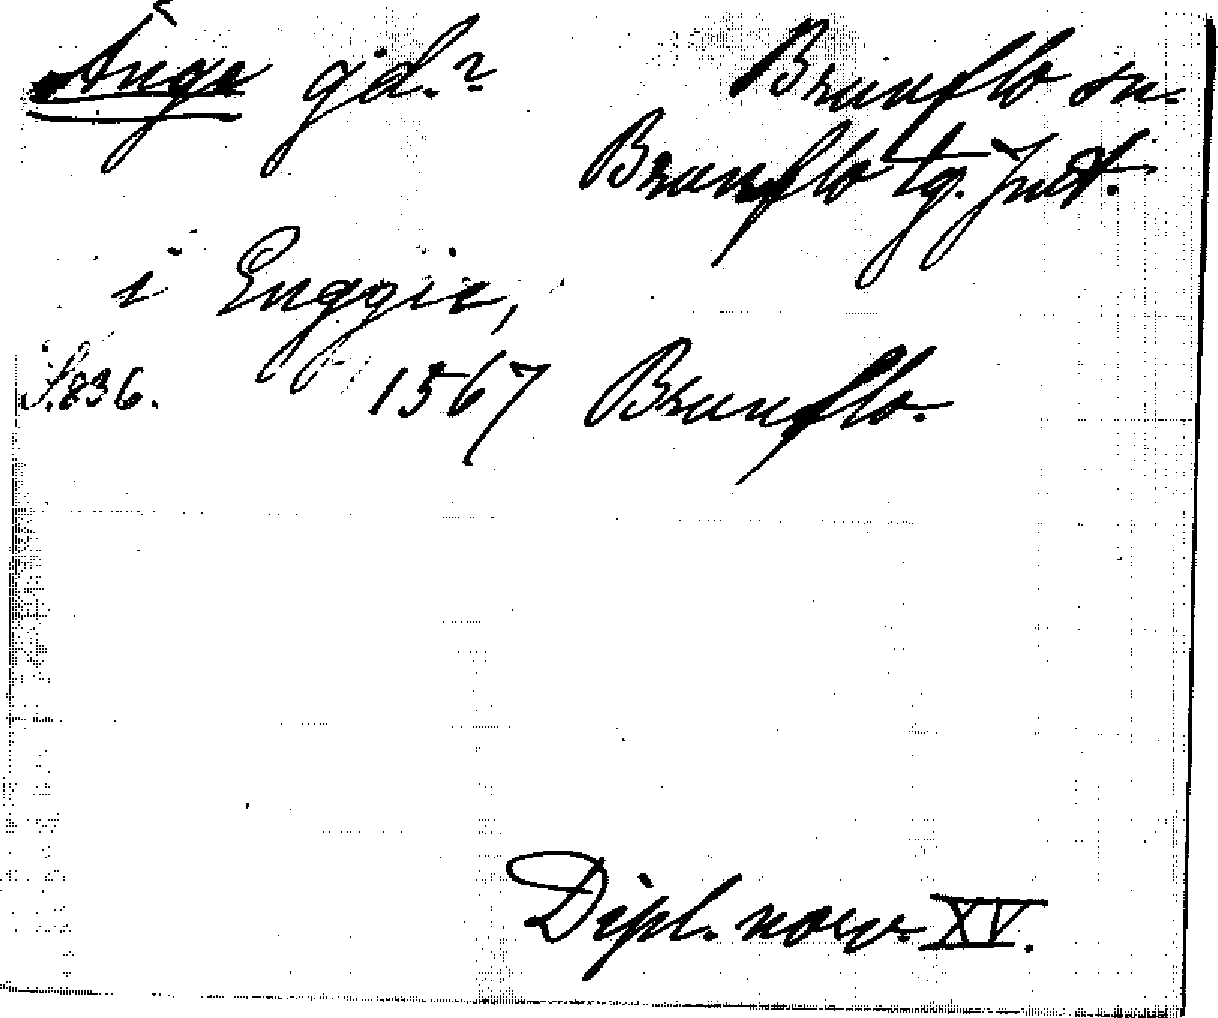 Änge gd.? Brunflo sn.
Brunflo tg. Jmt.
i Enggie,
S. 836. 1567 Brunflo.
Dipl. norv. XV.